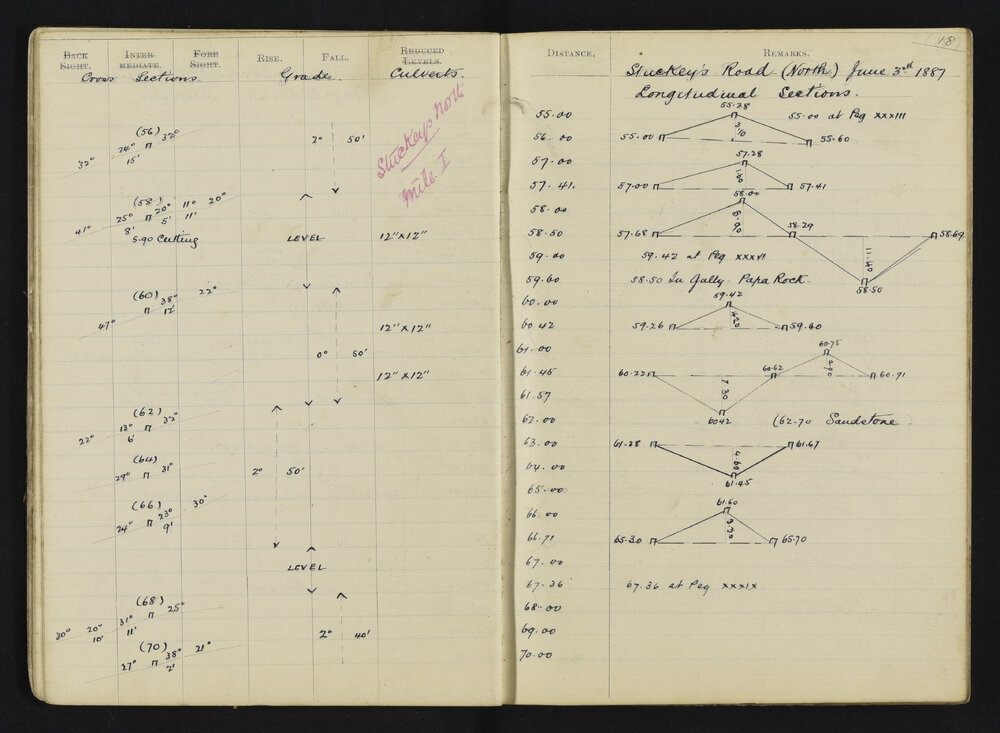 BACK SIGHT. INTER-MEDIATE. FORE SIGHT. RISE. FALL. REDUCED LEVELS.
Cross Sections Grade. Culverts.
Stuckeys North
Mile. I
(56)
32° 24° 32°
15'
2° 50'
(58) 11° 20°
41° 25° 20° 11'
8' 5'
5.90 Cutting
LEVEL 12"x12"
(60) 22°
47° 38°
12'
12"x12"
0° 50'
12"x12"
(62)
22° 13° 32°
6'
(64)
29° 31°
2° 50'
(66) 30°
24° 23°
9'
LEVEL
(68)
30° 20° 31° 25°
10' 11'
2° 40'
(70) 21°
27° 38°
2'
(18)
DISTANCE. REMARKS.
Stuckey's Road (North) June 3rd 1887
Longitudinal Sections.
55.00
56.00
57.00
57.41.
58.00
58.50
59.00
59.60
60.00
60.42
61.00
61.45
61.57
62.00
63.00
64.00
65.00
66.00
66.71
67.00
67.36
68.00
69.00
70.00
55.28 55.00 at Peg XXXIII
55.00 55.60
57.28
57.00 1.80 57.41
58.00
57.68 8.90 58.29 58.69
11.40
59.42 at Peg XXXVI
58.50 In Gully. Papa Rock.
58.50
59.42
59.26 4.20 59.60
60.75
60.22 60.62 2.90 60.91
7.30
60.42 (62.70 Sandstone
61.28 61.67
4.60
61.45
61.60
65.30 3.30 65.70
67.36 at Peg XXXIX